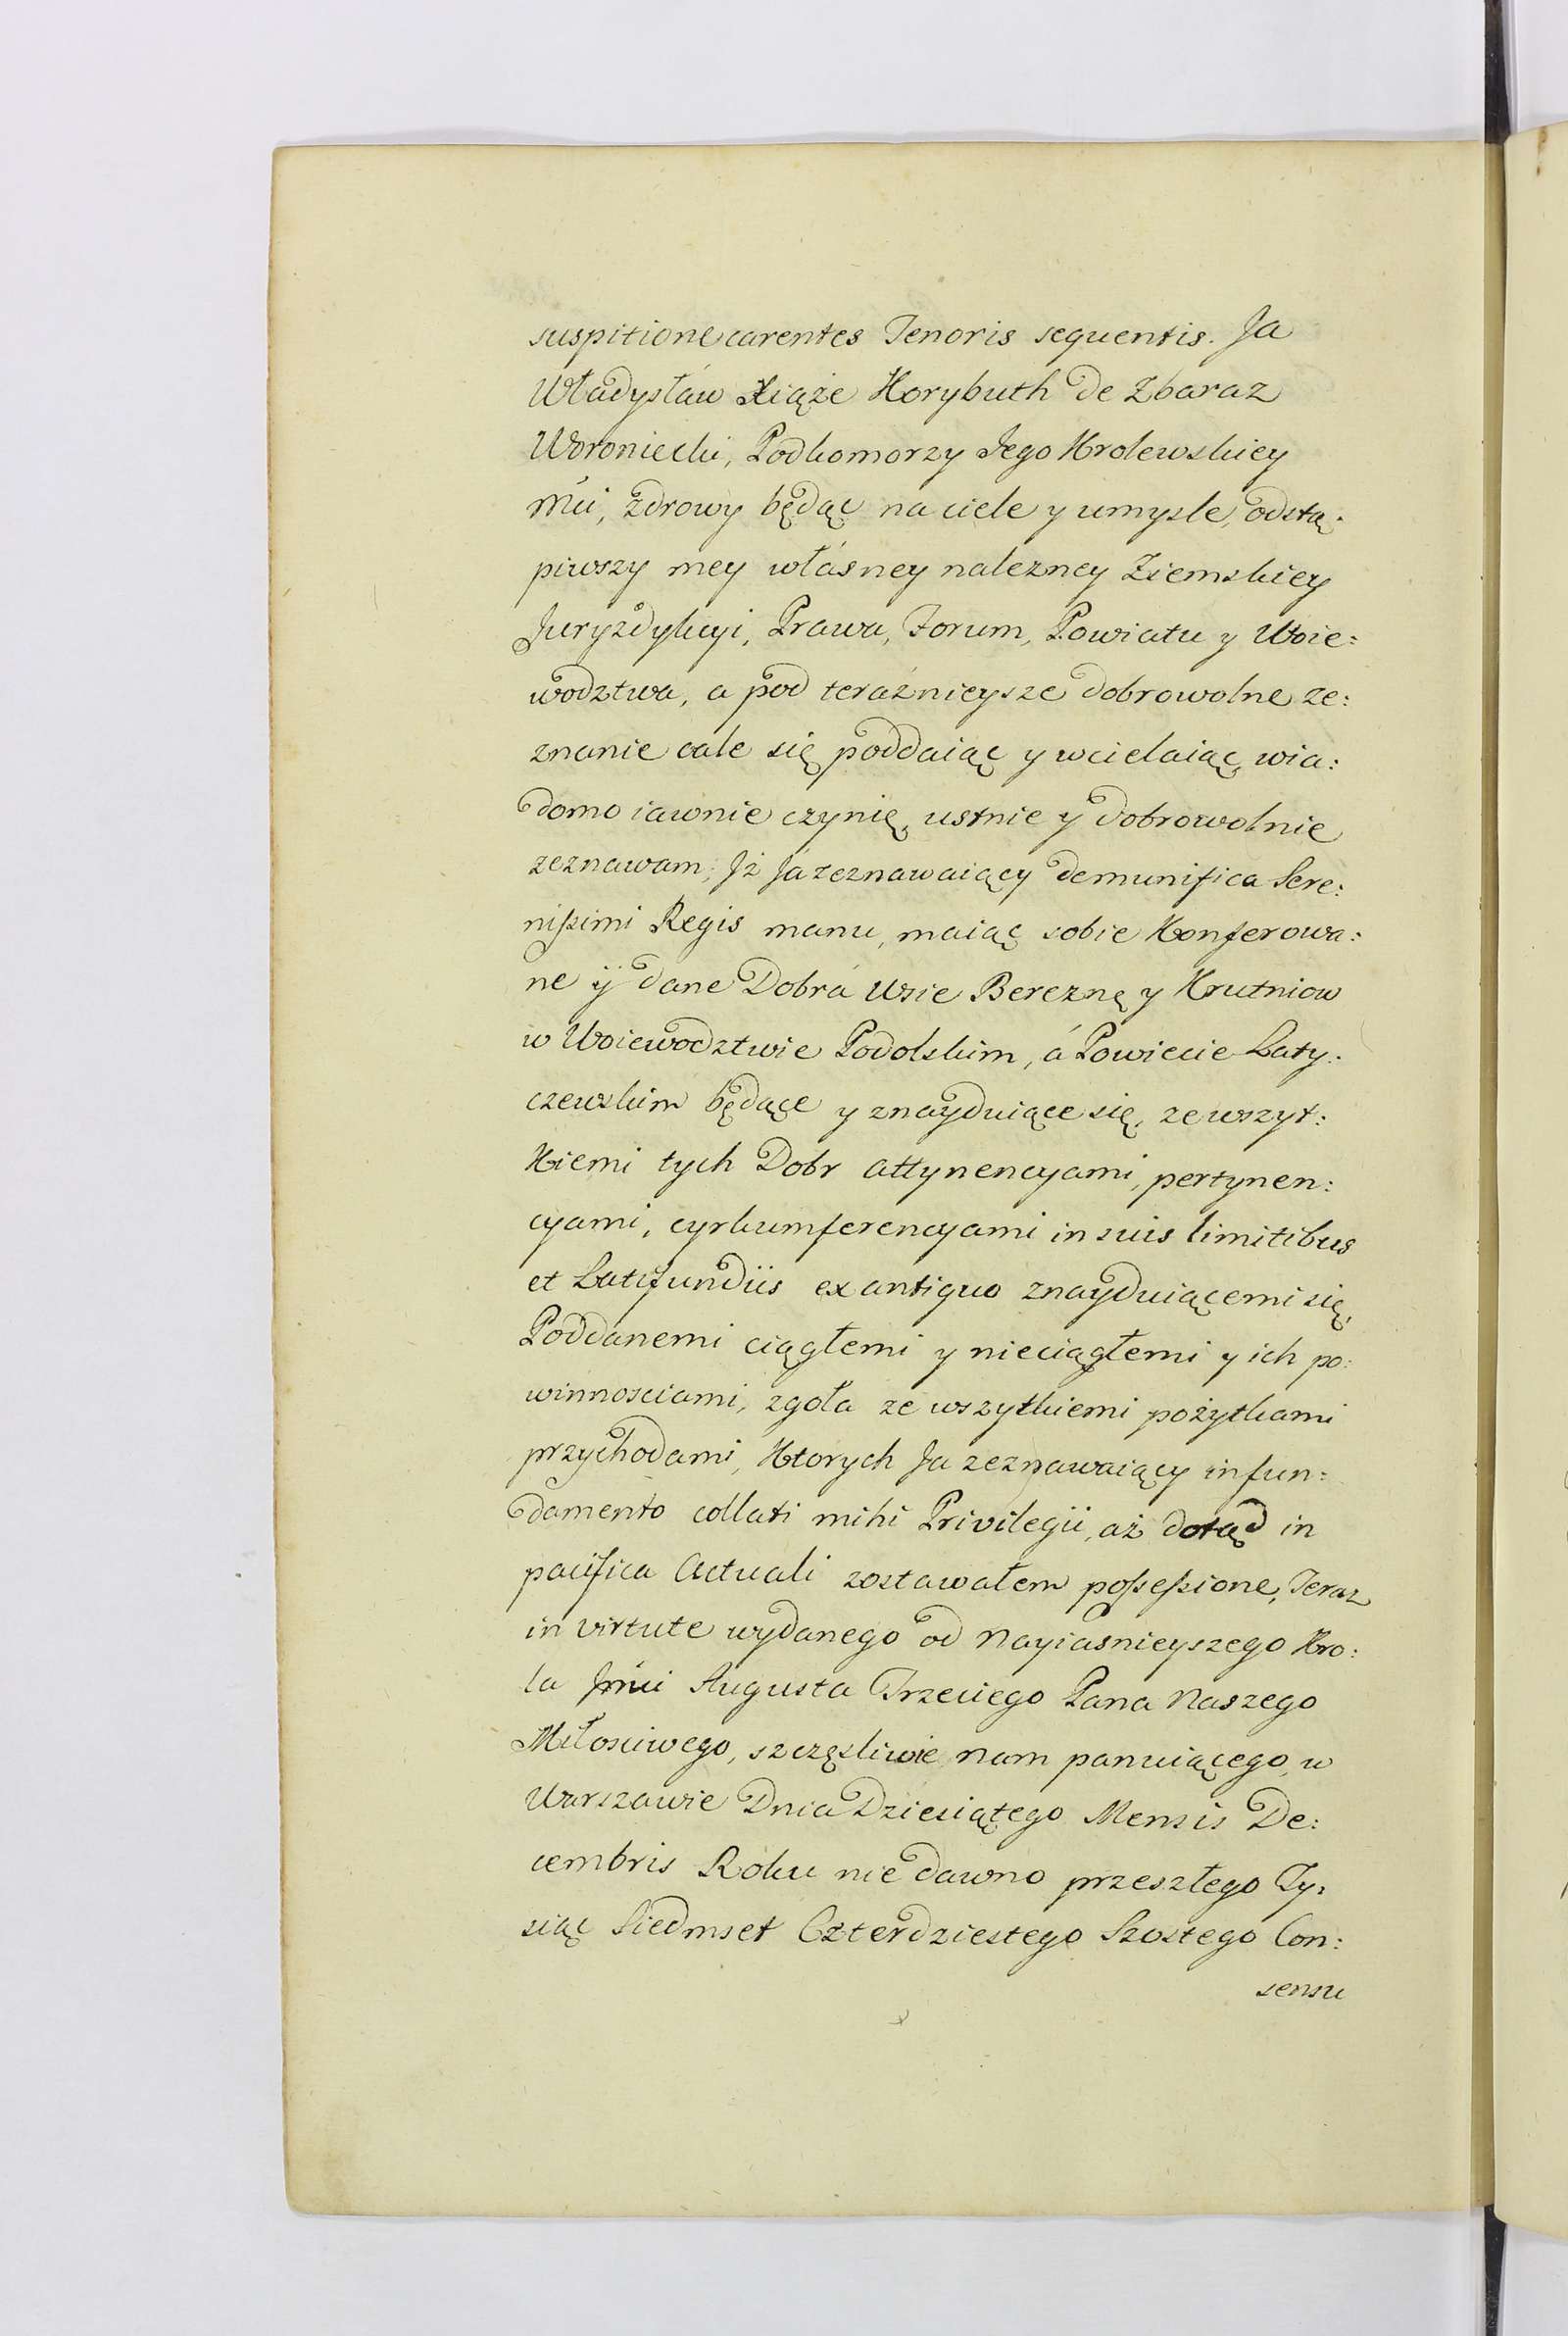 suspitione carentes Tenoris sequentis. Ja
Władysław Xiąże Korybuth de Zbaraz
Woroniecki, Podkomorzy Jego Krolewskiey
Mci, zdrowy będąc na ciele y umysle, odstą:
piwszy mey własney nalezney Ziemskiey
Juryzdykcyi, Prawa, Forum, Powiatu y Woie:
wodztwa, a pod teraźnieysze dobrowolne ze:
znanie cale się poddaiąc y wcielaiąc, wia:
domo iawnie czynię, ustnie y dobrowolnie
zeznawam; Jż Ja zeznawaiący de munifica Sere:
nißimi Regis manu, maiąc sobie Konferowa:
ne ÿ dane Dobrá Wsie Bereznę y Krutniow
w Woiewodztwie Podolskim, á Powiecie Laty:
czewskim będące y znayduiące się, ze wszyt:
kiemi tych Dobr attynencyami, pertynen:
cyami, cyrkumferencyami in suis limitibus
et Latifundiis ex antiquo znayduiącemi się,
Poddanemi ciągłemi y nieciągłemi y ich po:
winnosciami, zgoła ze wszytkiemi pożytkami
przychodami, Ktorych Ja zeznawaiący in fun:
damento collati mihi Privilegii, aż dotąd in
pacifica Actuali zostawałem poßeßione, Teraz
in virtute wydanego od Nayiasnieyszego Kro:
la Jmci Augusta Trzeciego Pana Naszego
Miłosciwego, szczęsliwie nam panuiącego, w
Warszawie Dnia Dziesiątego Mensis De:
cembris Roku nie dawno przeszłego Ty:
siąc Siedmset Czterdziestego Szostego Con:
sensu